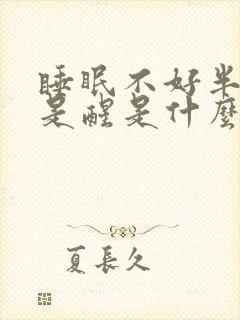 睡眠不好半
是醒是什麽
夏長久